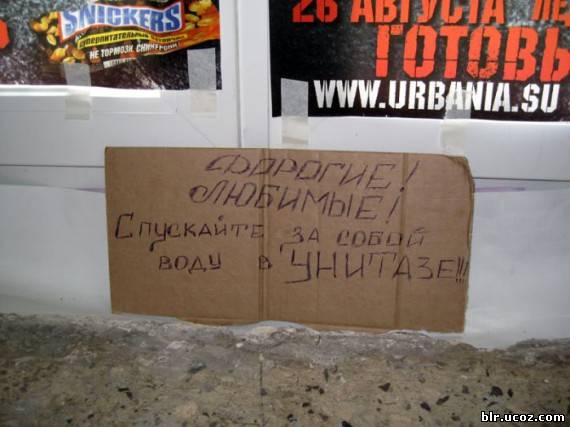 SNICKERS
Суперпитательный батончик
НЕ ТОРМОЗИ. СНИКЕРСНИ
26 АВГУСТА
ГОТОВЬ
WWW.URBANIA.SU
ДОРОГИЕ!
ЛЮБИМЫЕ!
СПУСКАЙТЕ ЗА СОБОЙ
ВОДУ В УНИТАЗЕ!!!
blr.ucoz.com